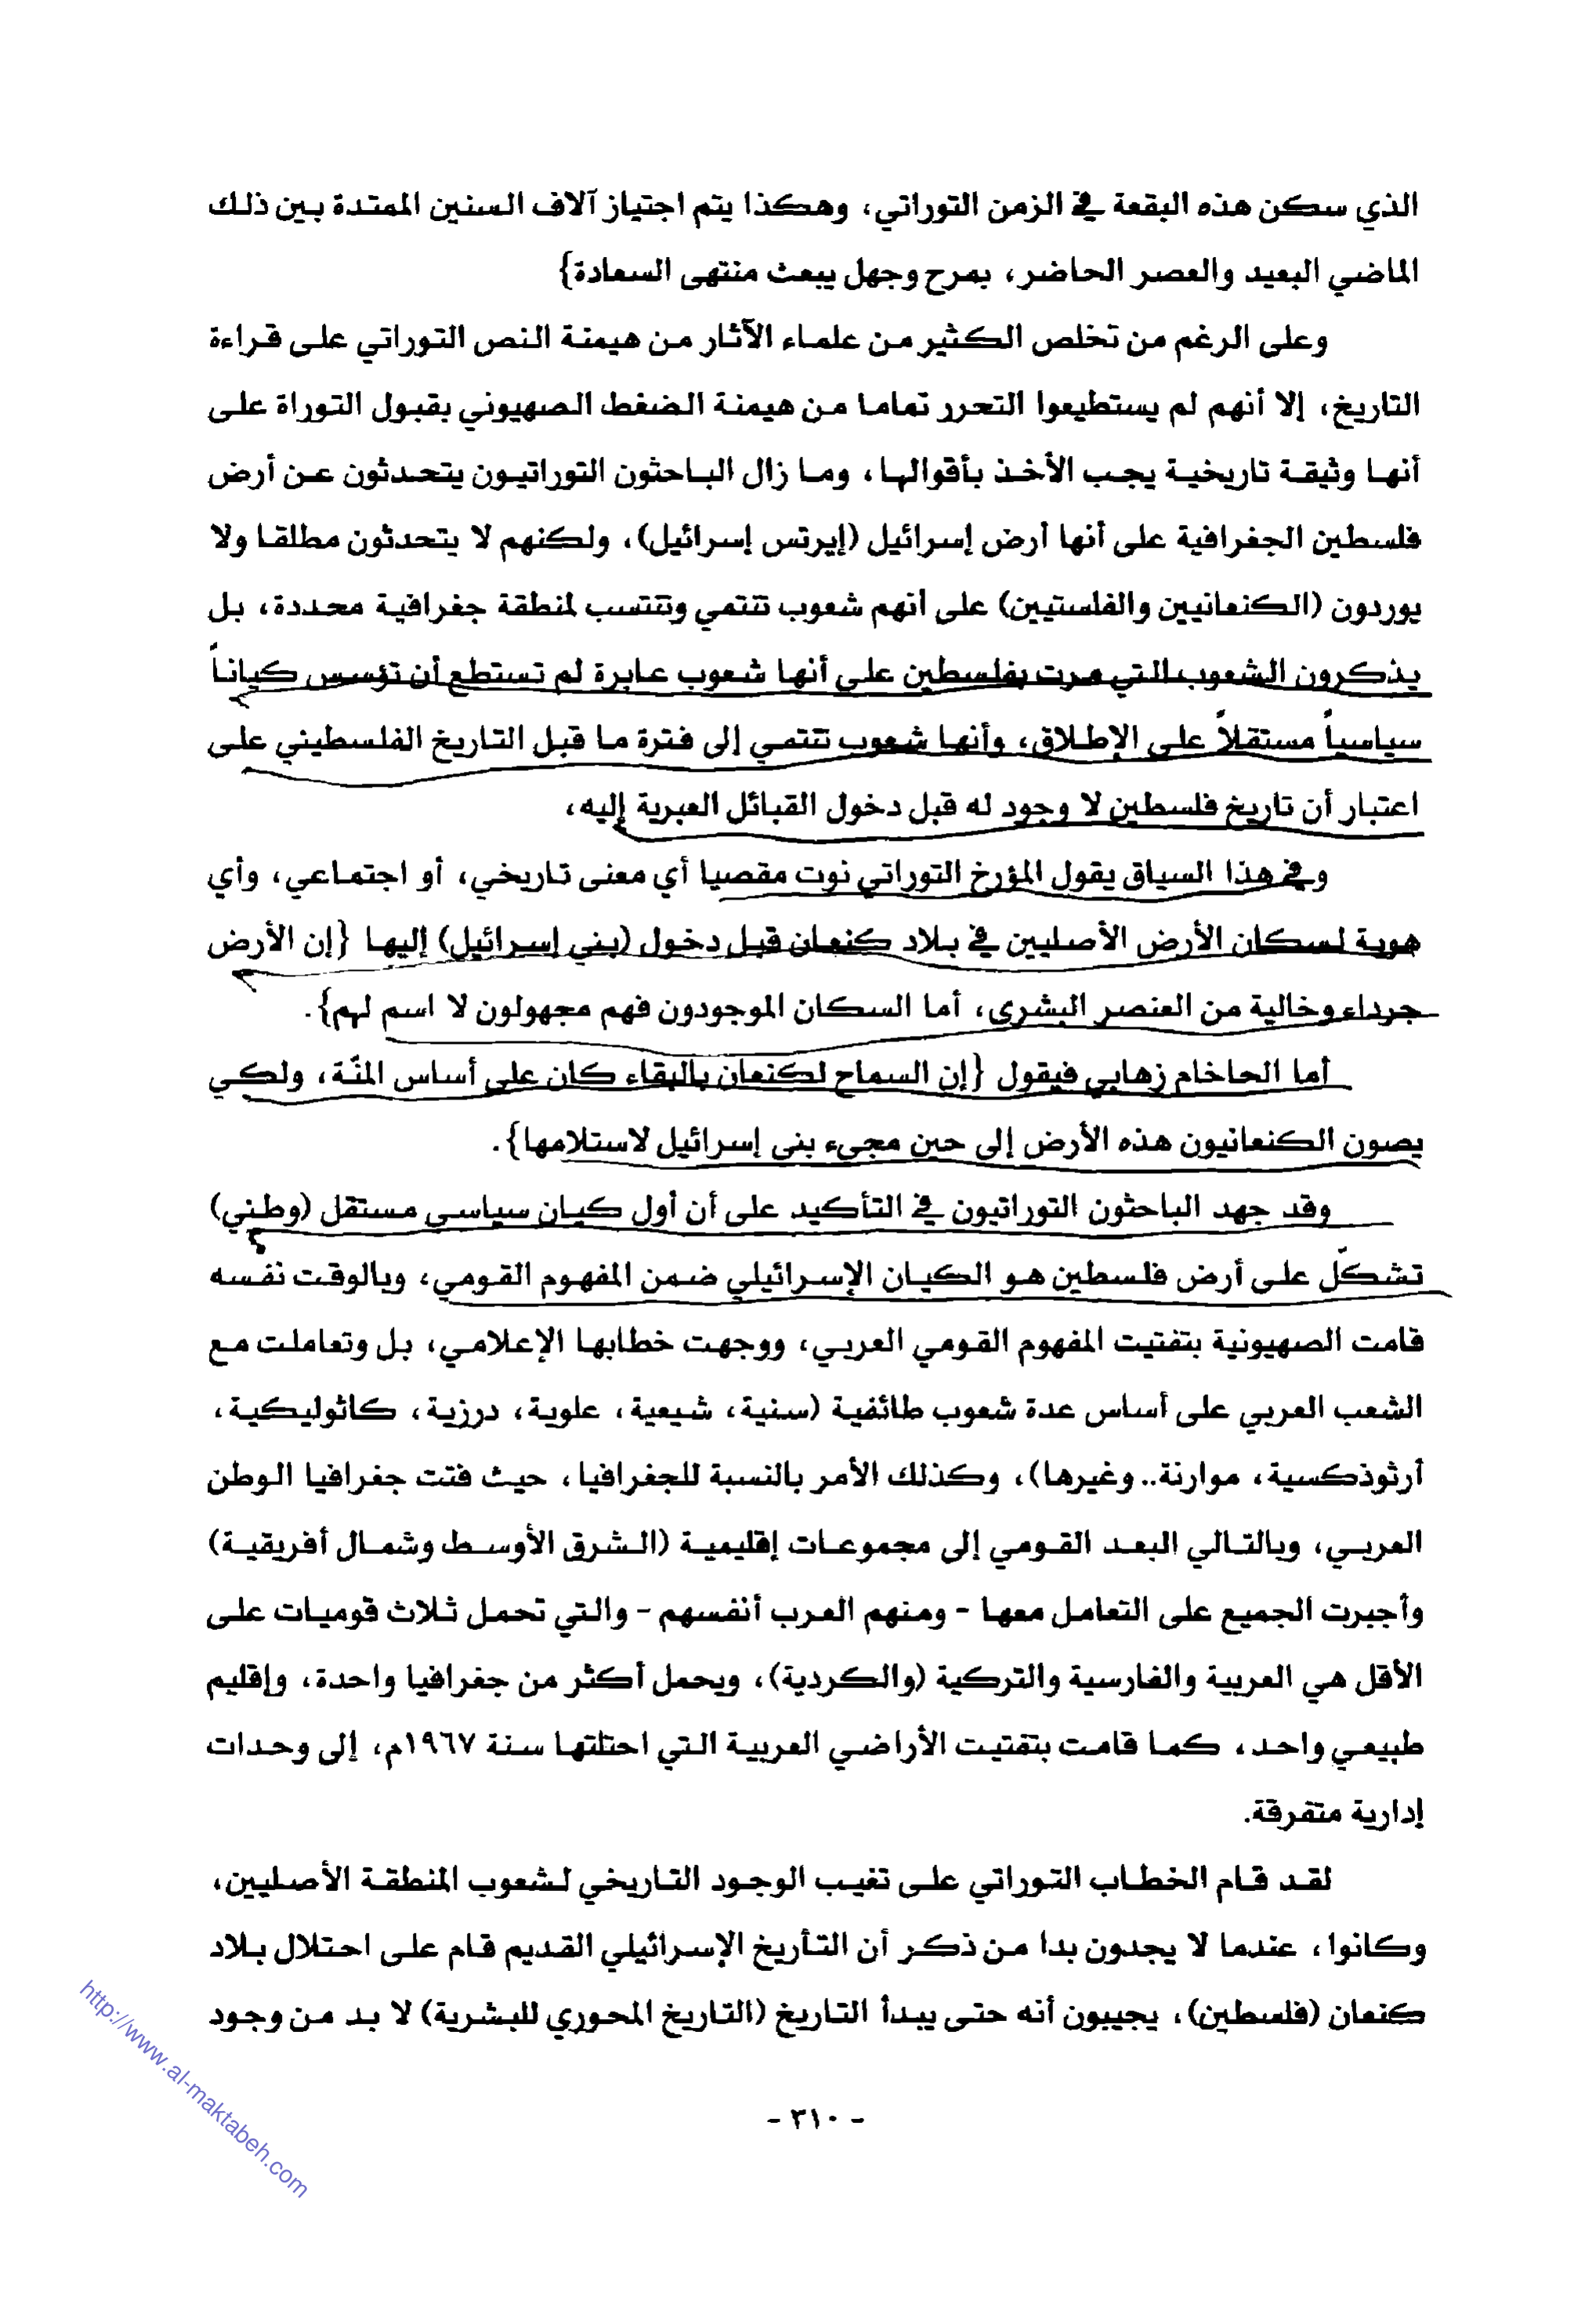 الذي سكن هذه البقعة في الزمن التوراتي، وهكذا يتم اجتياز آلاف السنين الممتدة بين ذلك
الماضي البعيد والعصر الحاضر، بمرح وجهل يبعث منتهى السعادة}
وعلى الرغم من تخلص الكثير من علماء الآثار من هيمنة النص التوراتي على قراءة
التاريخ، إلا أنهم لم يستطيعوا التحرر تماما من هيمنة الضغط الصهيوني بقبول التوراة على
أنها وثيقة تاريخية يجب الأخذ بأقوالها، وما زال الباحثون التوراتيون يتحدثون عن أرض
فلسطين الجغرافية على أنها أرض إسرائيل (إيرتس إسرائيل)، ولكنهم لا يتحدثون مطلقا ولا
يوردون (الكنعانيين والفلستيين) على انهم شعوب تنتمي وتنتسب لمنطقة جغرافية محددة، بل
يذكرون الشعوب التي مرت بفلسطين على أنها شعوب عابرة لم تستطع أن تؤسس كياناً
سياسياً مستقلاً على الإطلاق، وأنها شعوب تنتمي إلى فترة ما قبل التاريخ الفلسطيني على
اعتبار أن تاريخ فلسطين لا وجود له قبل دخول القبائل العبرية إليه،
وفي هذا السياق يقول المؤرخ التوراتي نوت مقصيا أي معنى تاريخي، أو اجتماعي، وأي
هوية لسكان الأرض الأصليين في بلاد كنعان قبل دخول (بني إسرائيل) إليها {إن الأرض
جرداء وخالية من العنصر البشري، أما السكان الموجودون فهم مجهولون لا اسم لهم}.
أما الحاخام زهابي فيقول {إن السماح لكنعان بالبقاء كان على أساس المنّة، ولكي
يصون الكنعانيون هذه الأرض إلى حين مجيء بني إسرائيل لاستلامها}.
وقد جهد الباحثون التوراتيون في التأكيد على أن أول كيان سياسي مستقل (وطني)
تشكّل على أرض فلسطين هو الكيان الإسرائيلي ضمن المفهوم القومي، وبالوقت نفسه
قامت الصهيونية بتفتيت المفهوم القومي العربي، ووجهت خطابها الإعلامي، بل وتعاملت مع
الشعب العربي على أساس عدة شعوب طائفية (سنية، شيعية، علوية، درزية، كاثوليكية،
أرثوذكسية، موارنة.. وغيرها)، وكذلك الأمر بالنسبة للجغرافيا، حيث فتت جغرافيا الوطن
العربي، وبالتالي البعد القومي إلى مجموعات إقليمية (الشرق الأوسط وشمال أفريقية)
وأجبرت الجميع على التعامل معها - ومنهم العرب أنفسهم - والتي تحمل ثلاث قوميات على
الأقل هي العربية والفارسية والتركية (والكردية)، ويحمل أكثر من جغرافيا واحدة، وإقليم
طبيعي واحد، كما قامت بتفتيت الأراضي العربية التي احتلتها سنة ١٩٦٧م، إلى وحدات
إدارية متفرقة.
لقد قام الخطاب التوراتي على تغيب الوجود التاريخي لشعوب المنطقة الأصليين،
وكانوا، عندما لا يجدون بدا من ذكر أن التأريخ الإسرائيلي القديم قام على احتلال بلاد
كنعان (فلسطين)، يجيبون أنه حتى يبدأ التاريخ (التاريخ المحوري للبشرية) لا بد من وجود
- ٣١٠ -
http://www.al-maktabeh.com